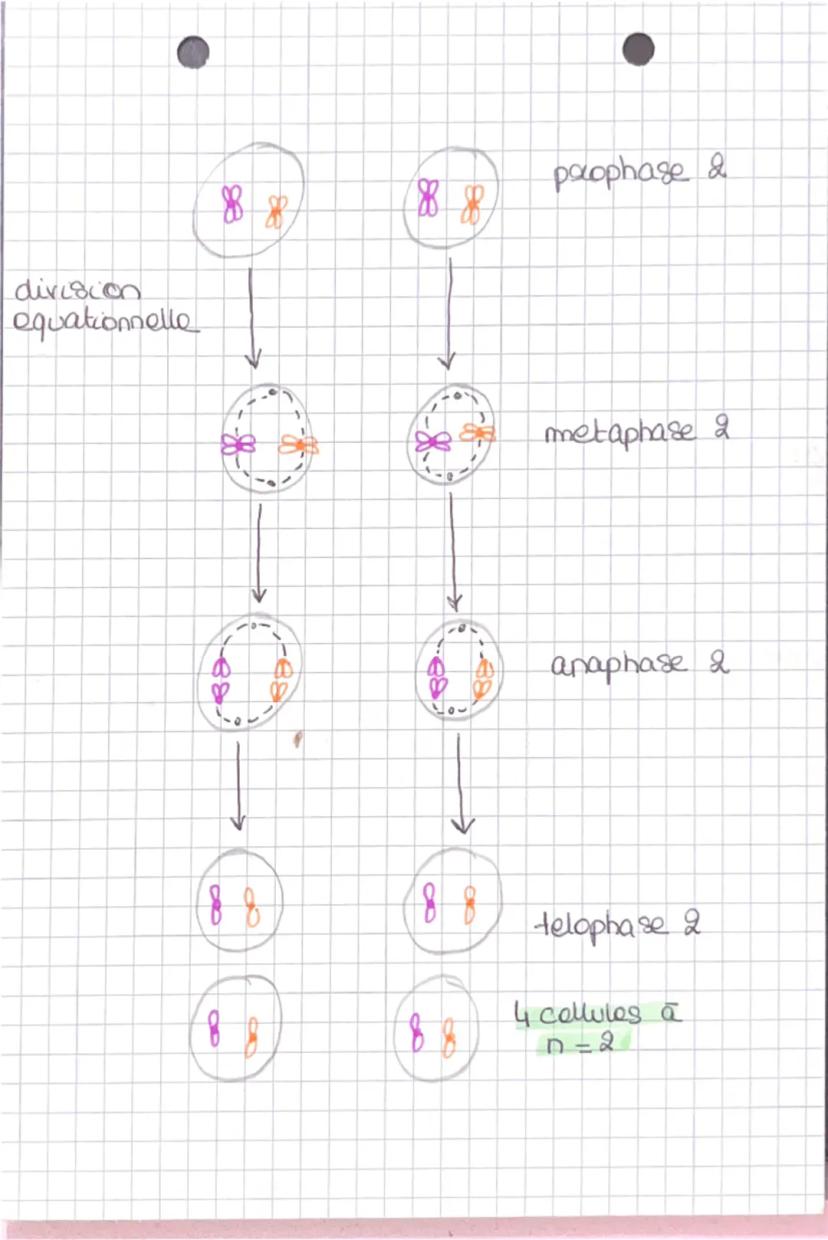 prophase 2
division
equationnelle
metaphase 2
anaphase 2
telophase 2
4 cellules à
n = 2